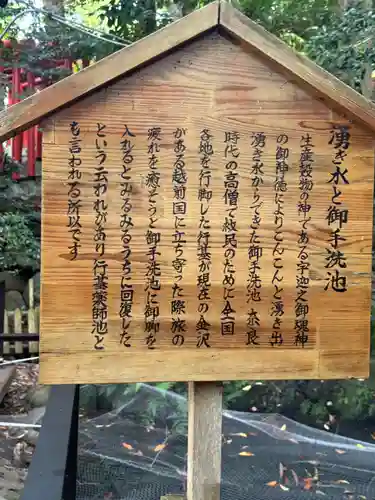 湧き水と御手洗池
生産穀物の神である宇迦之御魂神
の御神徳によりこんこんと湧き出
湧き水からできた御手洗池 奈良
時代の高僧で救民のために全国
各地を行脚した行基が現在の金沢
がある越前国に立ち寄った際旅の
疲れを癒そうと御手洗池に御脚を
入れるとみるみるうちに回復した
という云われがあり行基薬師池と
も言われる所以です